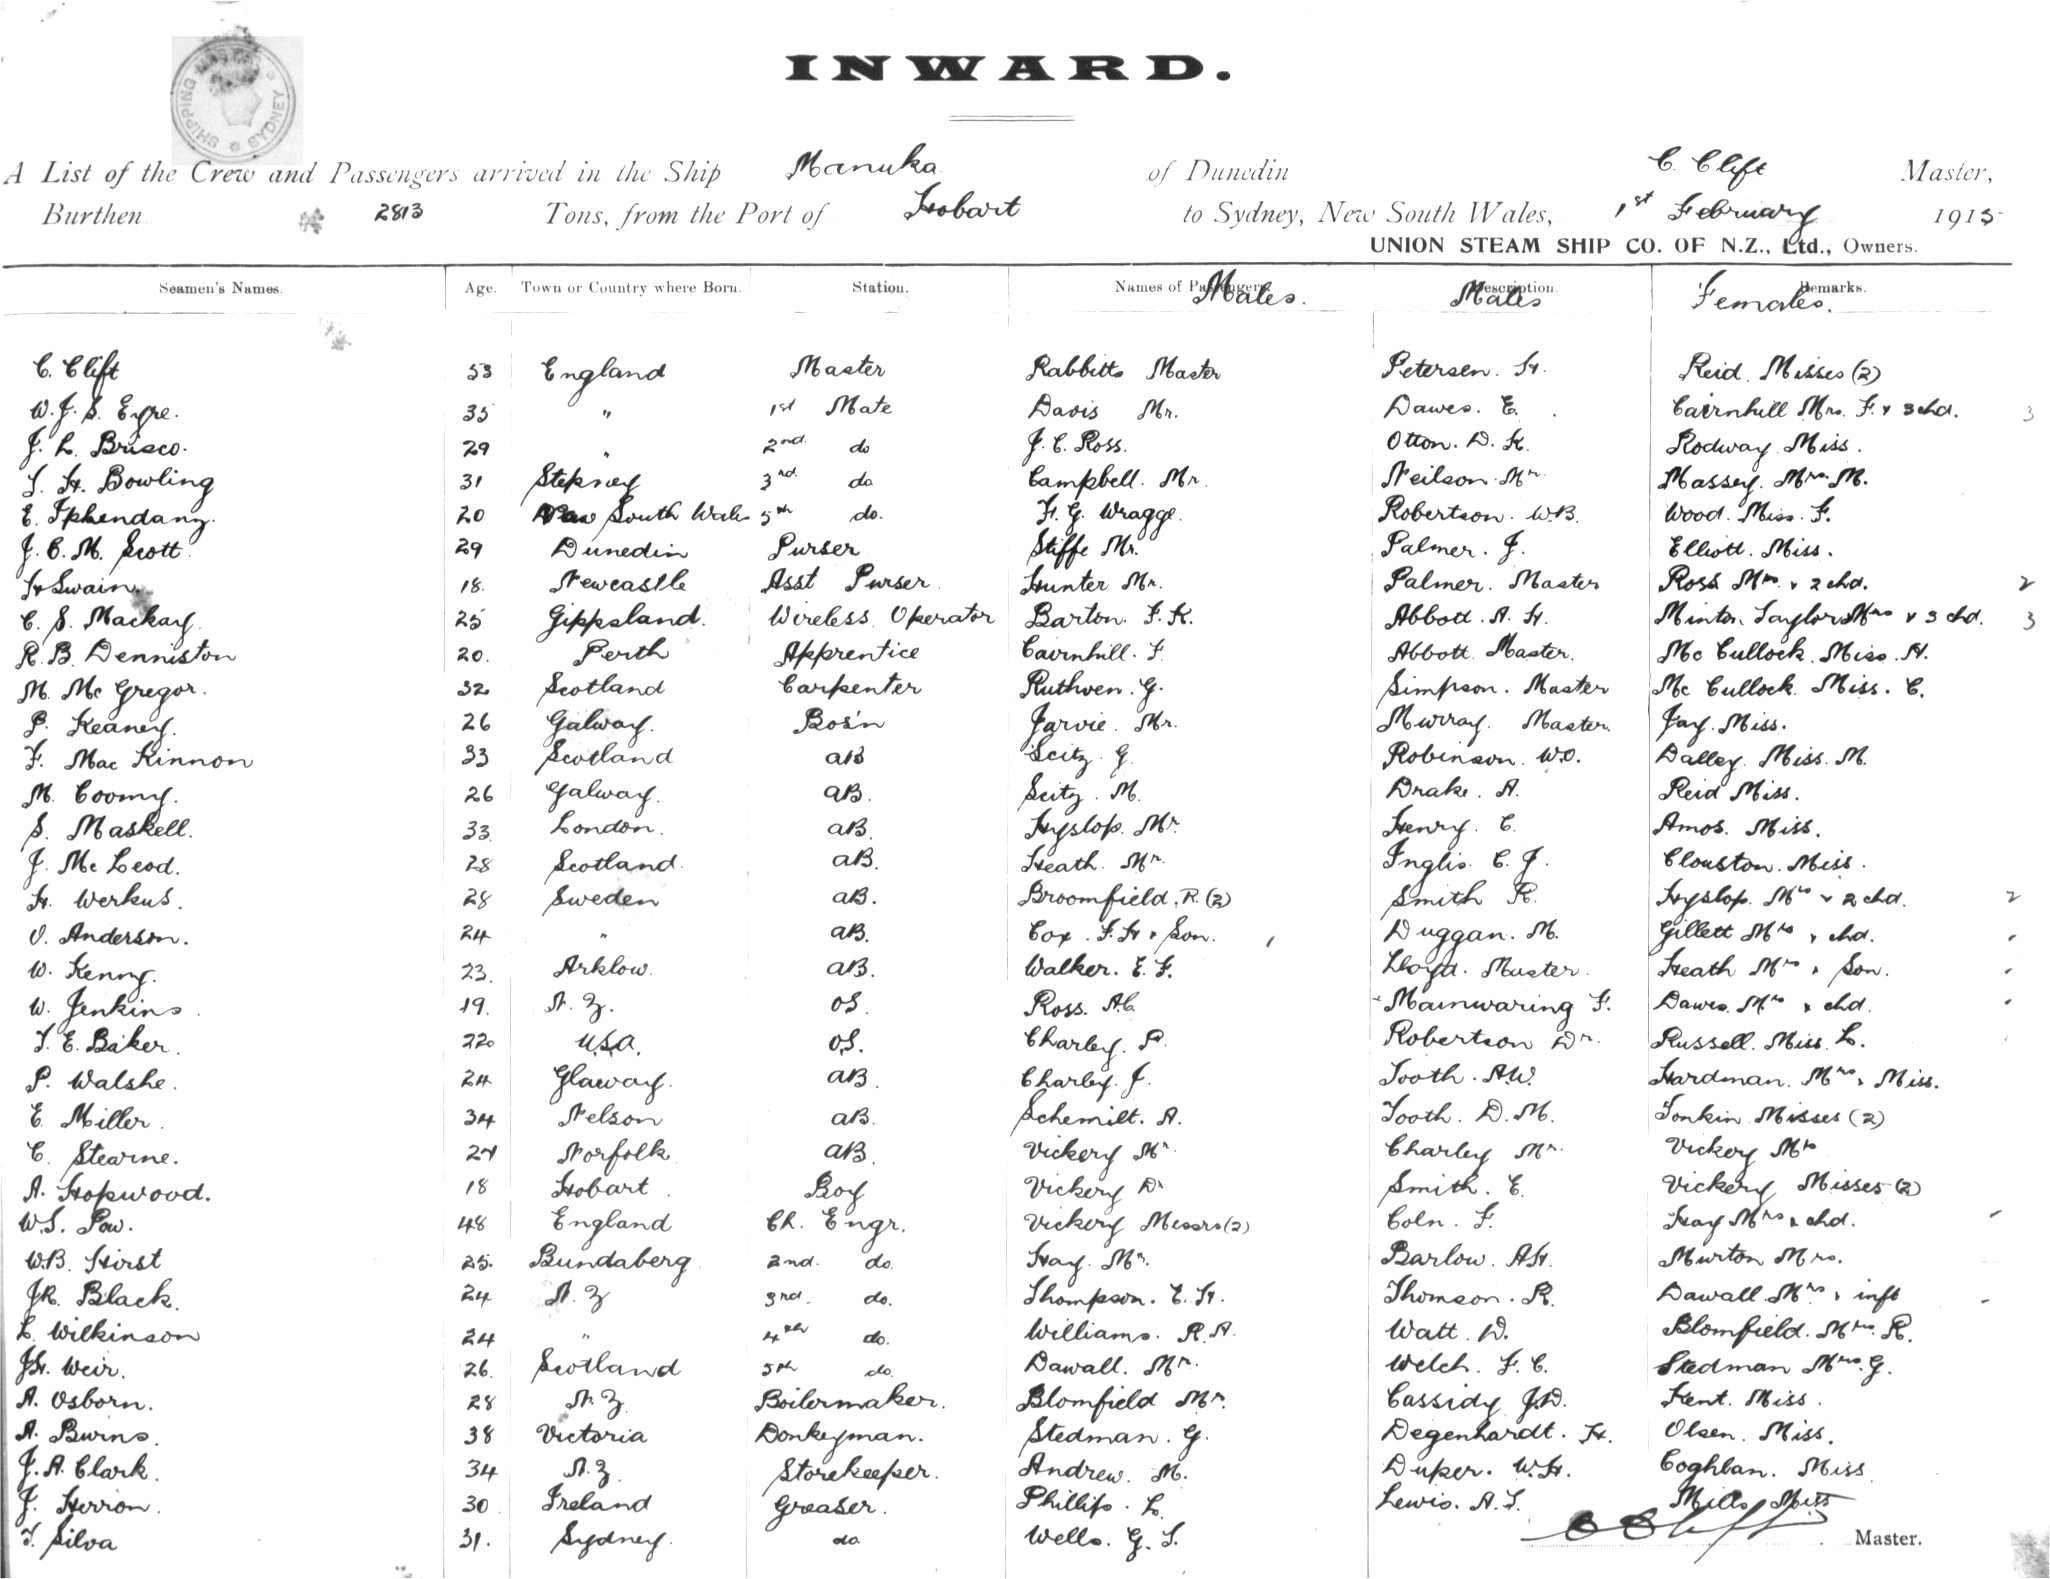 SHIPPING MASTER SYDNEY
INWARD.
A List of the Crew and Passengers arrived in the Ship Manuka of Dunedin C. Clift Master,
Burthen 2813 Tons, from the Port of Hobart to Sydney, New South Wales, 1st February 1915
UNION STEAM SHIP CO. OF N.Z., Ltd., Owners.
Seamen's Names. Age. Town or Country where Born. Station. Names of Passengers Males. Description. Males Remarks. Females.
C. Clift 53 England Master Rabbitts Master Petersen. H. Reid. Misses (2)
W. J. S. Eyre. 35 " 1st Mate Davis Mr. Dawes. E. Cairnhill Mrs. F. & 3 chd. 3
J. L. Brisco. 29 " 2nd. do J. C. Ross. Otton. D. K. Rodway. Miss.
S. H. Bowling 31 Stepney 3rd. do Campbell. Mr. Neilson. Mr. Massey. Mrs. M.
E. 20 New South Wales 5th do. F. G. Wragge. Robertson. W.B. Wood. Miss. F.
J. C. M. Scott. 29 Dunedin Purser Stiffe Mr. Palmer. J. Elliott. Miss.
H Swain. 18. Newcastle Asst Purser. Hunter Mr. Palmer. Master Ross Mrs & 2 chd. 2
C. S. Mackay. 25 Gippsland. Wireless Operator Barton. F. K. Abbott. A. H. Minter. Taylor Mrs & 3 chd. 3
R. B. Denniston 20. Perth Apprentice Cairnhill. F. Abbott. Master. Mc Cullock. Miss. H.
M. Mc Gregor. 32 Scotland Carpenter Ruthven. G. Simpson. Master Mc Cullock. Miss. C.
P. Keaney. 26 Galway. Bos'n Jarvie. Mr. Murray. Master. Jay. Miss.
F. Mac Kinnon 33 Scotland aB Seitz. G. Robinson. W.O. Dalley. Miss. M.
M. Coomy. 26 Galway. aB. Seitz. M. Drake. A. Reid Miss.
S. Maskell. 33. London. aB. Hyslop. Mr. Henry. C. Amos. Miss.
J. Mc Leod. 28 Scotland. aB. Heath. Mr. Inglis. C. J. Clouston. Miss.
H. Werkus. 28 Sweden aB. Broomfield. R. (2) Smith R. Hyslop. Mrs & 2 chd. 2
O. Anderson. 24 " aB. Cox. F. H & Son. Duggan. M. Gillett Mrs & chd.
W. Kenny. 23. Arklow. aB. Walker. E. F. Lloyd. Master. Heath Mrs & Son.
W. Jenkins. 19. N. Z. OS. Ross. A.C. Mainwaring F. Dawes. Mrs & chd.
T. E. Baker. 22 U.S.A. OS. Charley. P. Robertson Dr. Russell. Miss. L.
P. Walshe. 24 Glaway. aB. Charley. J. Tooth. A.W. Hardman. Mrs & Miss.
E. Miller. 34 Nelson aB. Schemilt. A. Tooth. D. M. Tonkin Misses (2)
C. Stearne. 24 Norfolk aB. Vickery Mr. Charley Mr. Vickery Mrs
A. Hopwood. 18 Hobart. Boy Vickery Dr Smith. E. Vickery Misses (2)
W. S. Pow. 48 England Ch. Engr. Vickery Messrs (2) Coln. F. Hay Mrs & chd.
W.B. Hirst 25. Bundaberg 2nd. do. Hay. Mr. Barlow. A.H. Murton Mrs.
J.R. Black. 24 N. Z 3rd. do. Thompson. E. H. Thomson. R. Dawall. Mrs & inft
L. Wilkinson 24 " 4th do. Williams. R. A. Watt. D. Blomfield. Mrs. R.
J.H. Weir. 26. Scotland 5th do. Dawall. Mr. Welch. F. C. Stedman Mrs. G.
A. Osborn. 28 N. Z. Boilermaker. Blomfield Mr. Cassidy J.D. Kent. Miss.
A. Bwins. 38 Victoria Donkeyman. Stedman. G. Degenhardt. H. Olsen. Miss.
J. A. Clark. 34 N. Z. Storekeeper. Andrew. M. Duper. W. H. Coghlan. Miss
J. Herron. 30 Ireland Greaser. Phillips. L. Lewis. A. S. Mills Miss
T. Silva 31. Sydney. do Wells. G. S. C Clift Master.